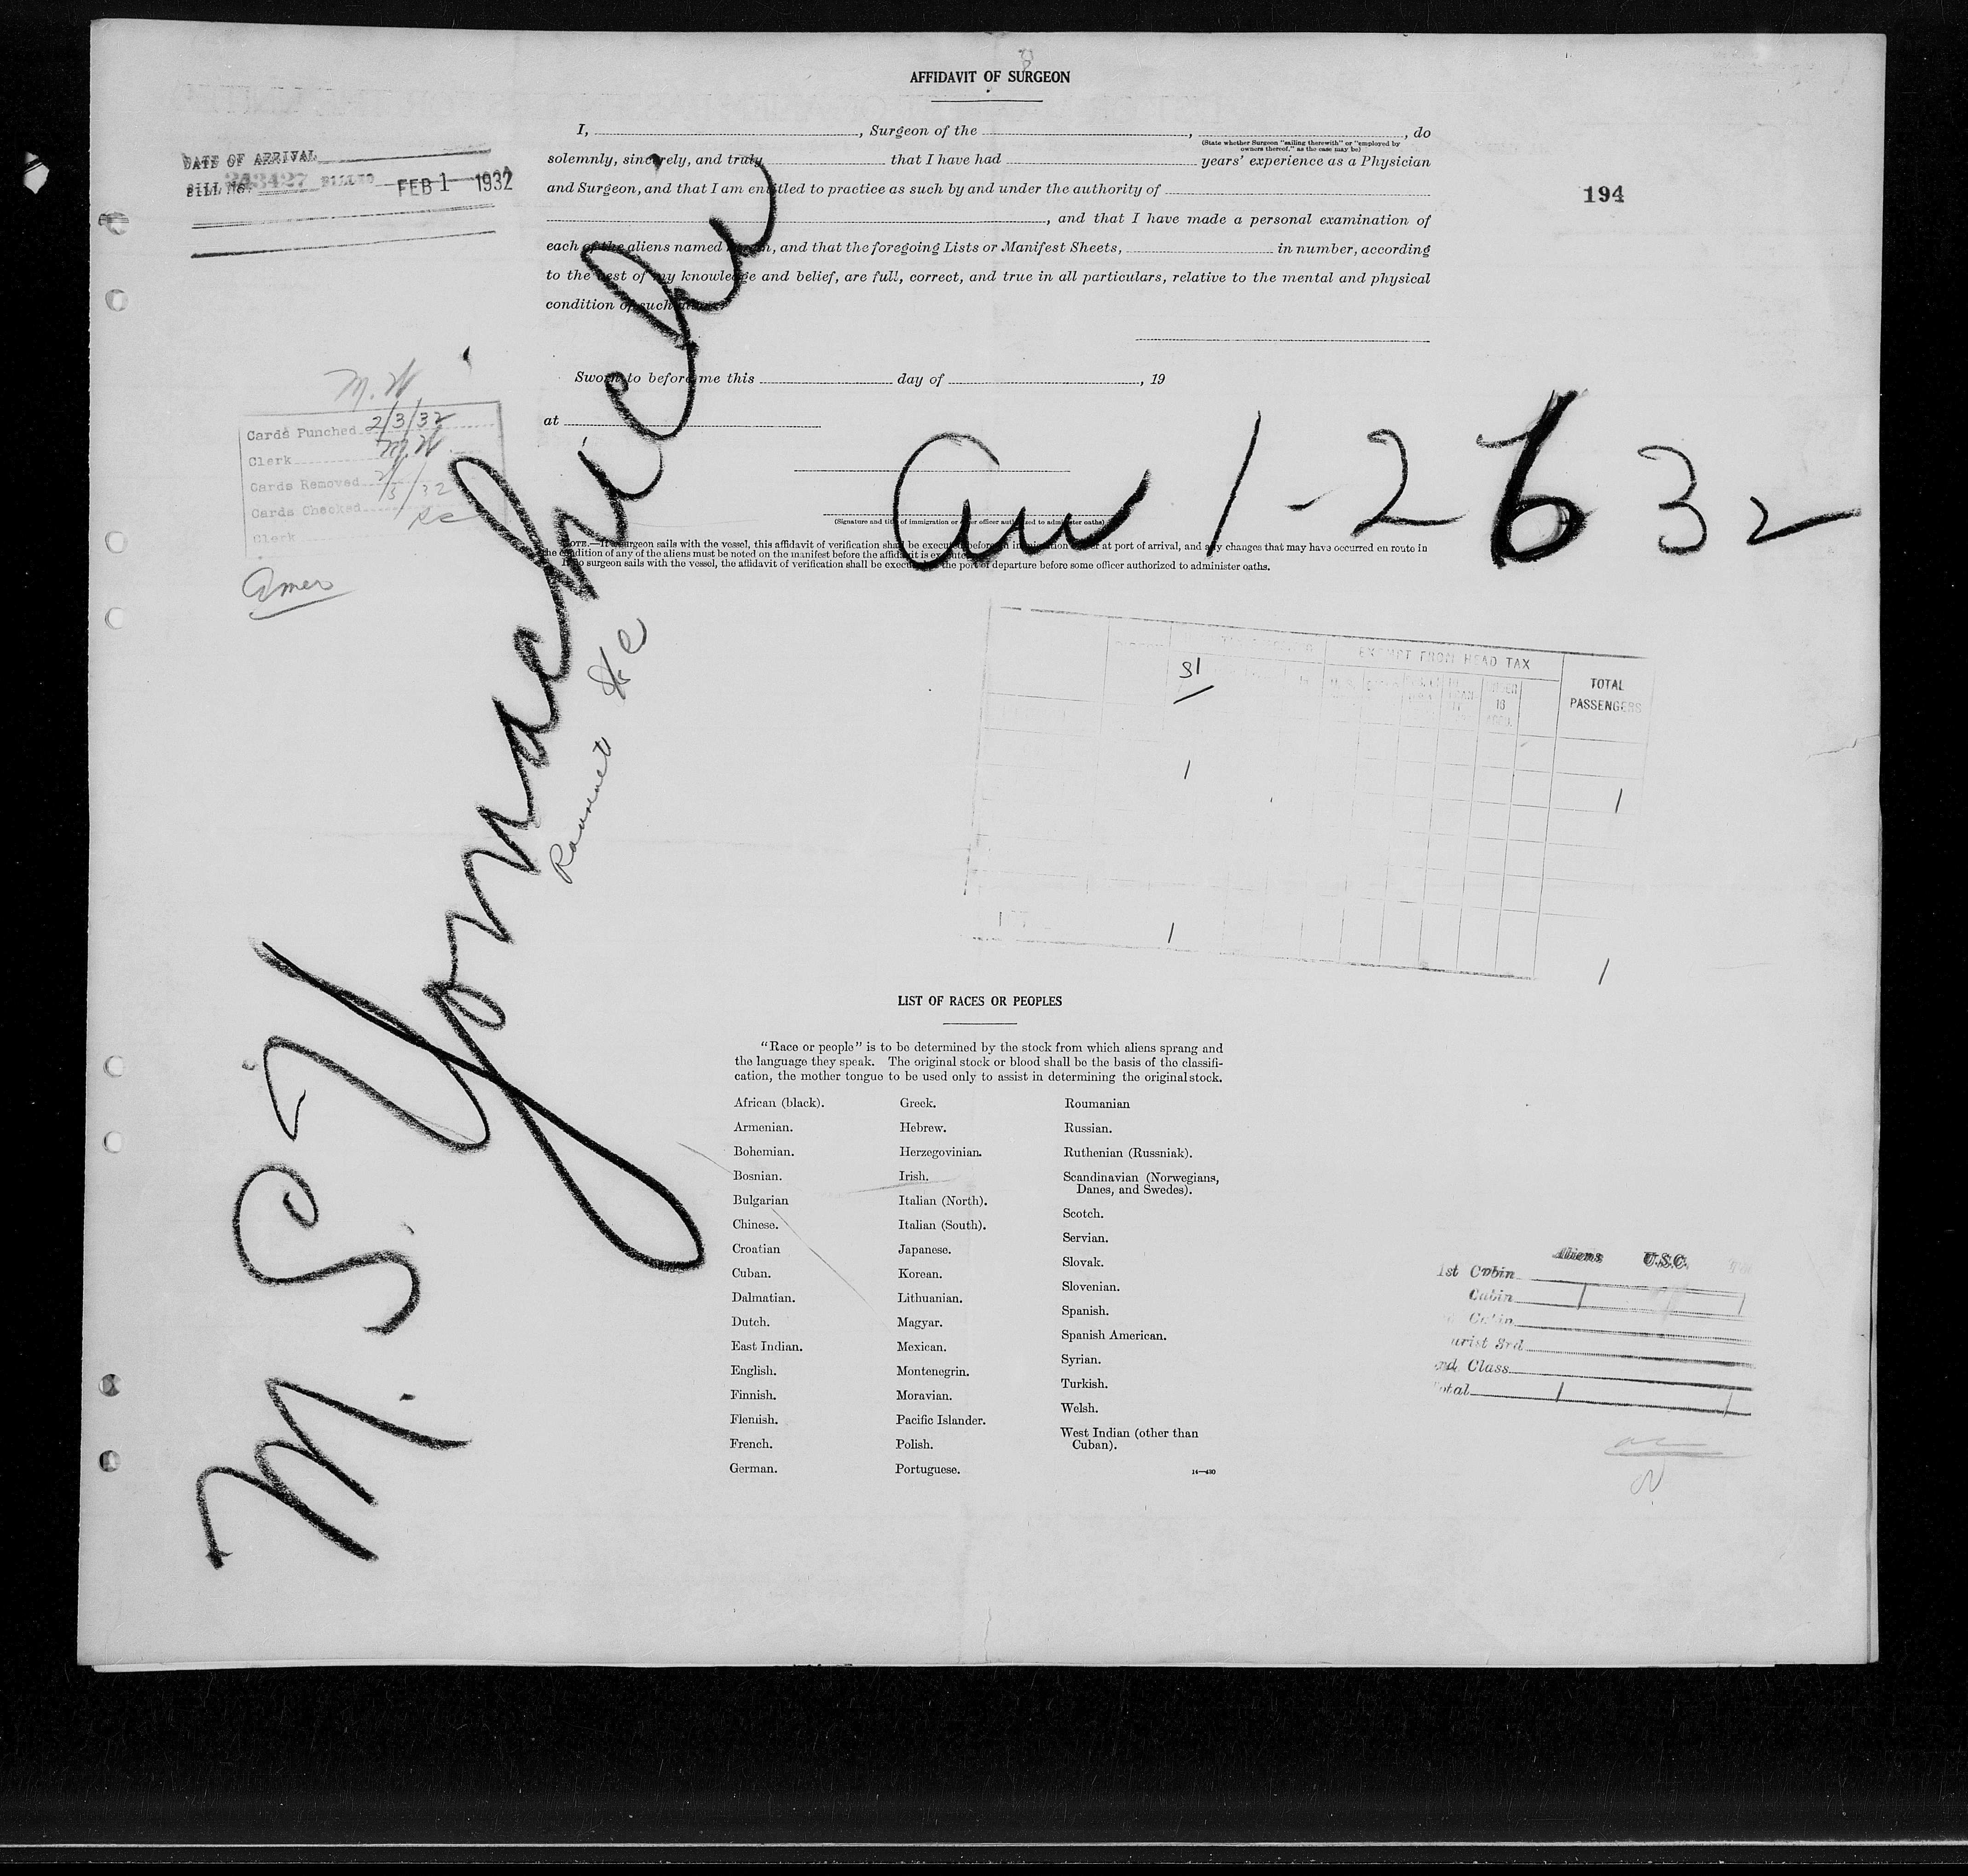 AFFIDAVIT OF SURGEON
I, , Surgeon of the , , do
(State whether Surgeon "sailing therewith" or "employed by owners thereof," as the case may be)
solemnly, sincerely, and truly that I have had years' experience as a Physician
and Surgeon, and that I am entitled to practice as such by and under the authority of
, and that I have made a personal examination of
each of the aliens named herein, and that the foregoing Lists or Manifest Sheets, in number, according
to the best of my knowledge and belief, are full, correct, and true in all particulars, relative to the mental and physical
condition of such
Sworn to before me this day of , 19
at
(Signature and title of immigration or other officer authorized to administer oaths)
NOTE.—If a surgeon sails with the vessel, this affidavit of verification shall be executed before an immigration officer at port of arrival, and any changes that may have occurred en route in
the condition of any of the aliens must be noted on the manifest before the affidavit is executed.
If no surgeon sails with the vessel, the affidavit of verification shall be executed at the port of departure before some officer authorized to administer oaths.
DATE OF ARRIVAL
BILL No. 343427 BILLED FEB 1 1932
194
M. W
Cards Punched 2/3/32
Clerk M.W.
Cards Removed 2/3/32
Cards Checked
Clerk
Amer
M. S.
Arr 1-26 32
31
EXEMPT FROM HEAD TAX
TOTAL
PASSENGERS
UNDER
16
1
1
1
1
LIST OF RACES OR PEOPLES
"Race or people" is to be determined by the stock from which aliens sprang and
the language they speak. The original stock or blood shall be the basis of the classifi-
cation, the mother tongue to be used only to assist in determining the original stock.
African (black).
Armenian.
Bohemian.
Bosnian.
Bulgarian
Chinese.
Croatian
Cuban.
Dalmatian.
Dutch.
East Indian.
English.
Finnish.
Flemish.
French.
German.
Greek.
Hebrew.
Herzegovinian.
Irish.
Italian (North).
Italian (South).
Japanese.
Korean.
Lithuanian.
Magyar.
Mexican.
Montenegrin.
Moravian.
Pacific Islander.
Polish.
Portuguese.
Roumanian
Russian.
Ruthenian (Russniak).
Scandinavian (Norwegians,
Danes, and Swedes).
Scotch.
Servian.
Slovak.
Slovenian.
Spanish.
Spanish American.
Syrian.
Turkish.
Welsh.
West Indian (other than
Cuban).
14—430
Aliens U.S.C.
1st Cabin
Cabin 1 1
Cabin
urist 3rd
Class
otal 1 1